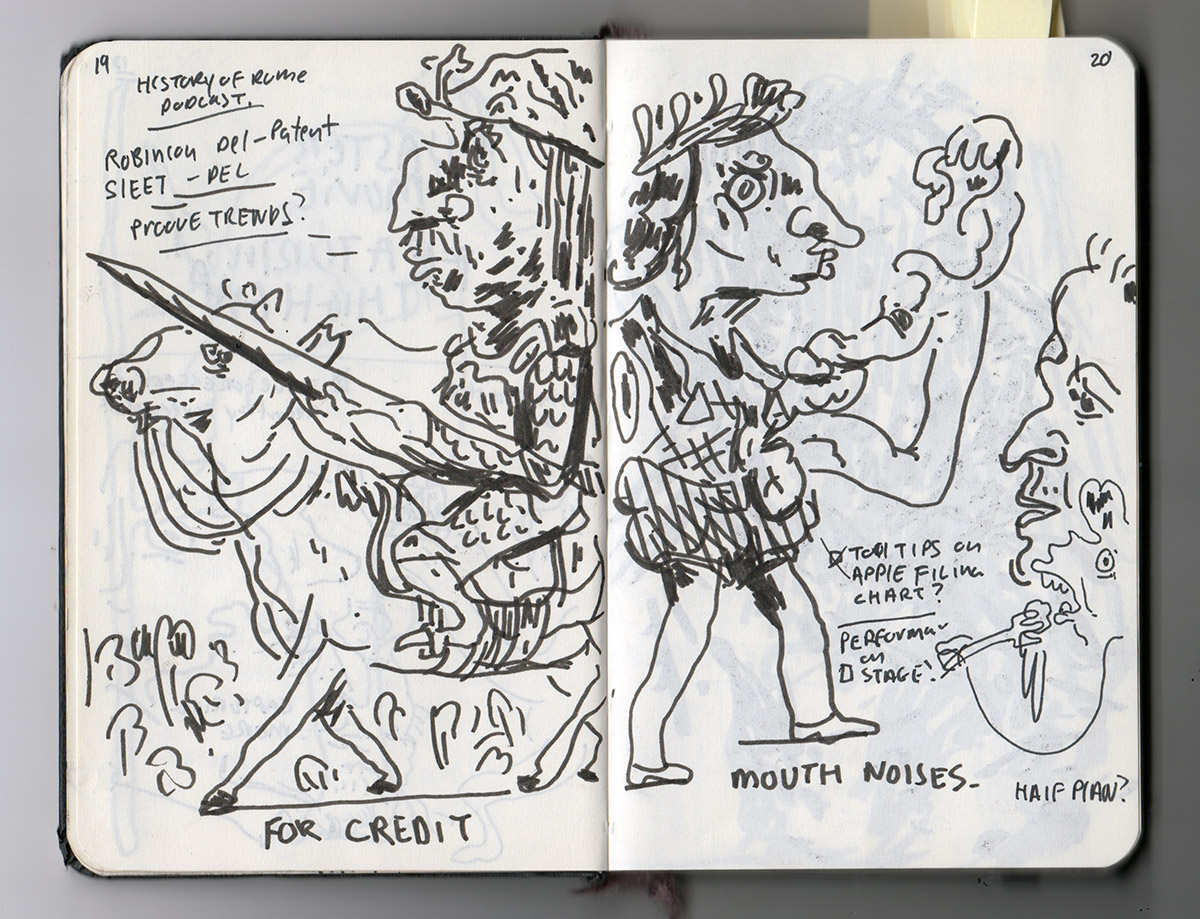 19
HISTORY OF ROME
PODCAST.
ROBINSON DEL-Patent
SLEET - DEL
PROOVE TRENDS?
FOR CREDIT
20
TOP TIPS ON
APPLE FILING
CHART?
ON
STAGE?
MOUTH NOISES.
HALF PLAN?